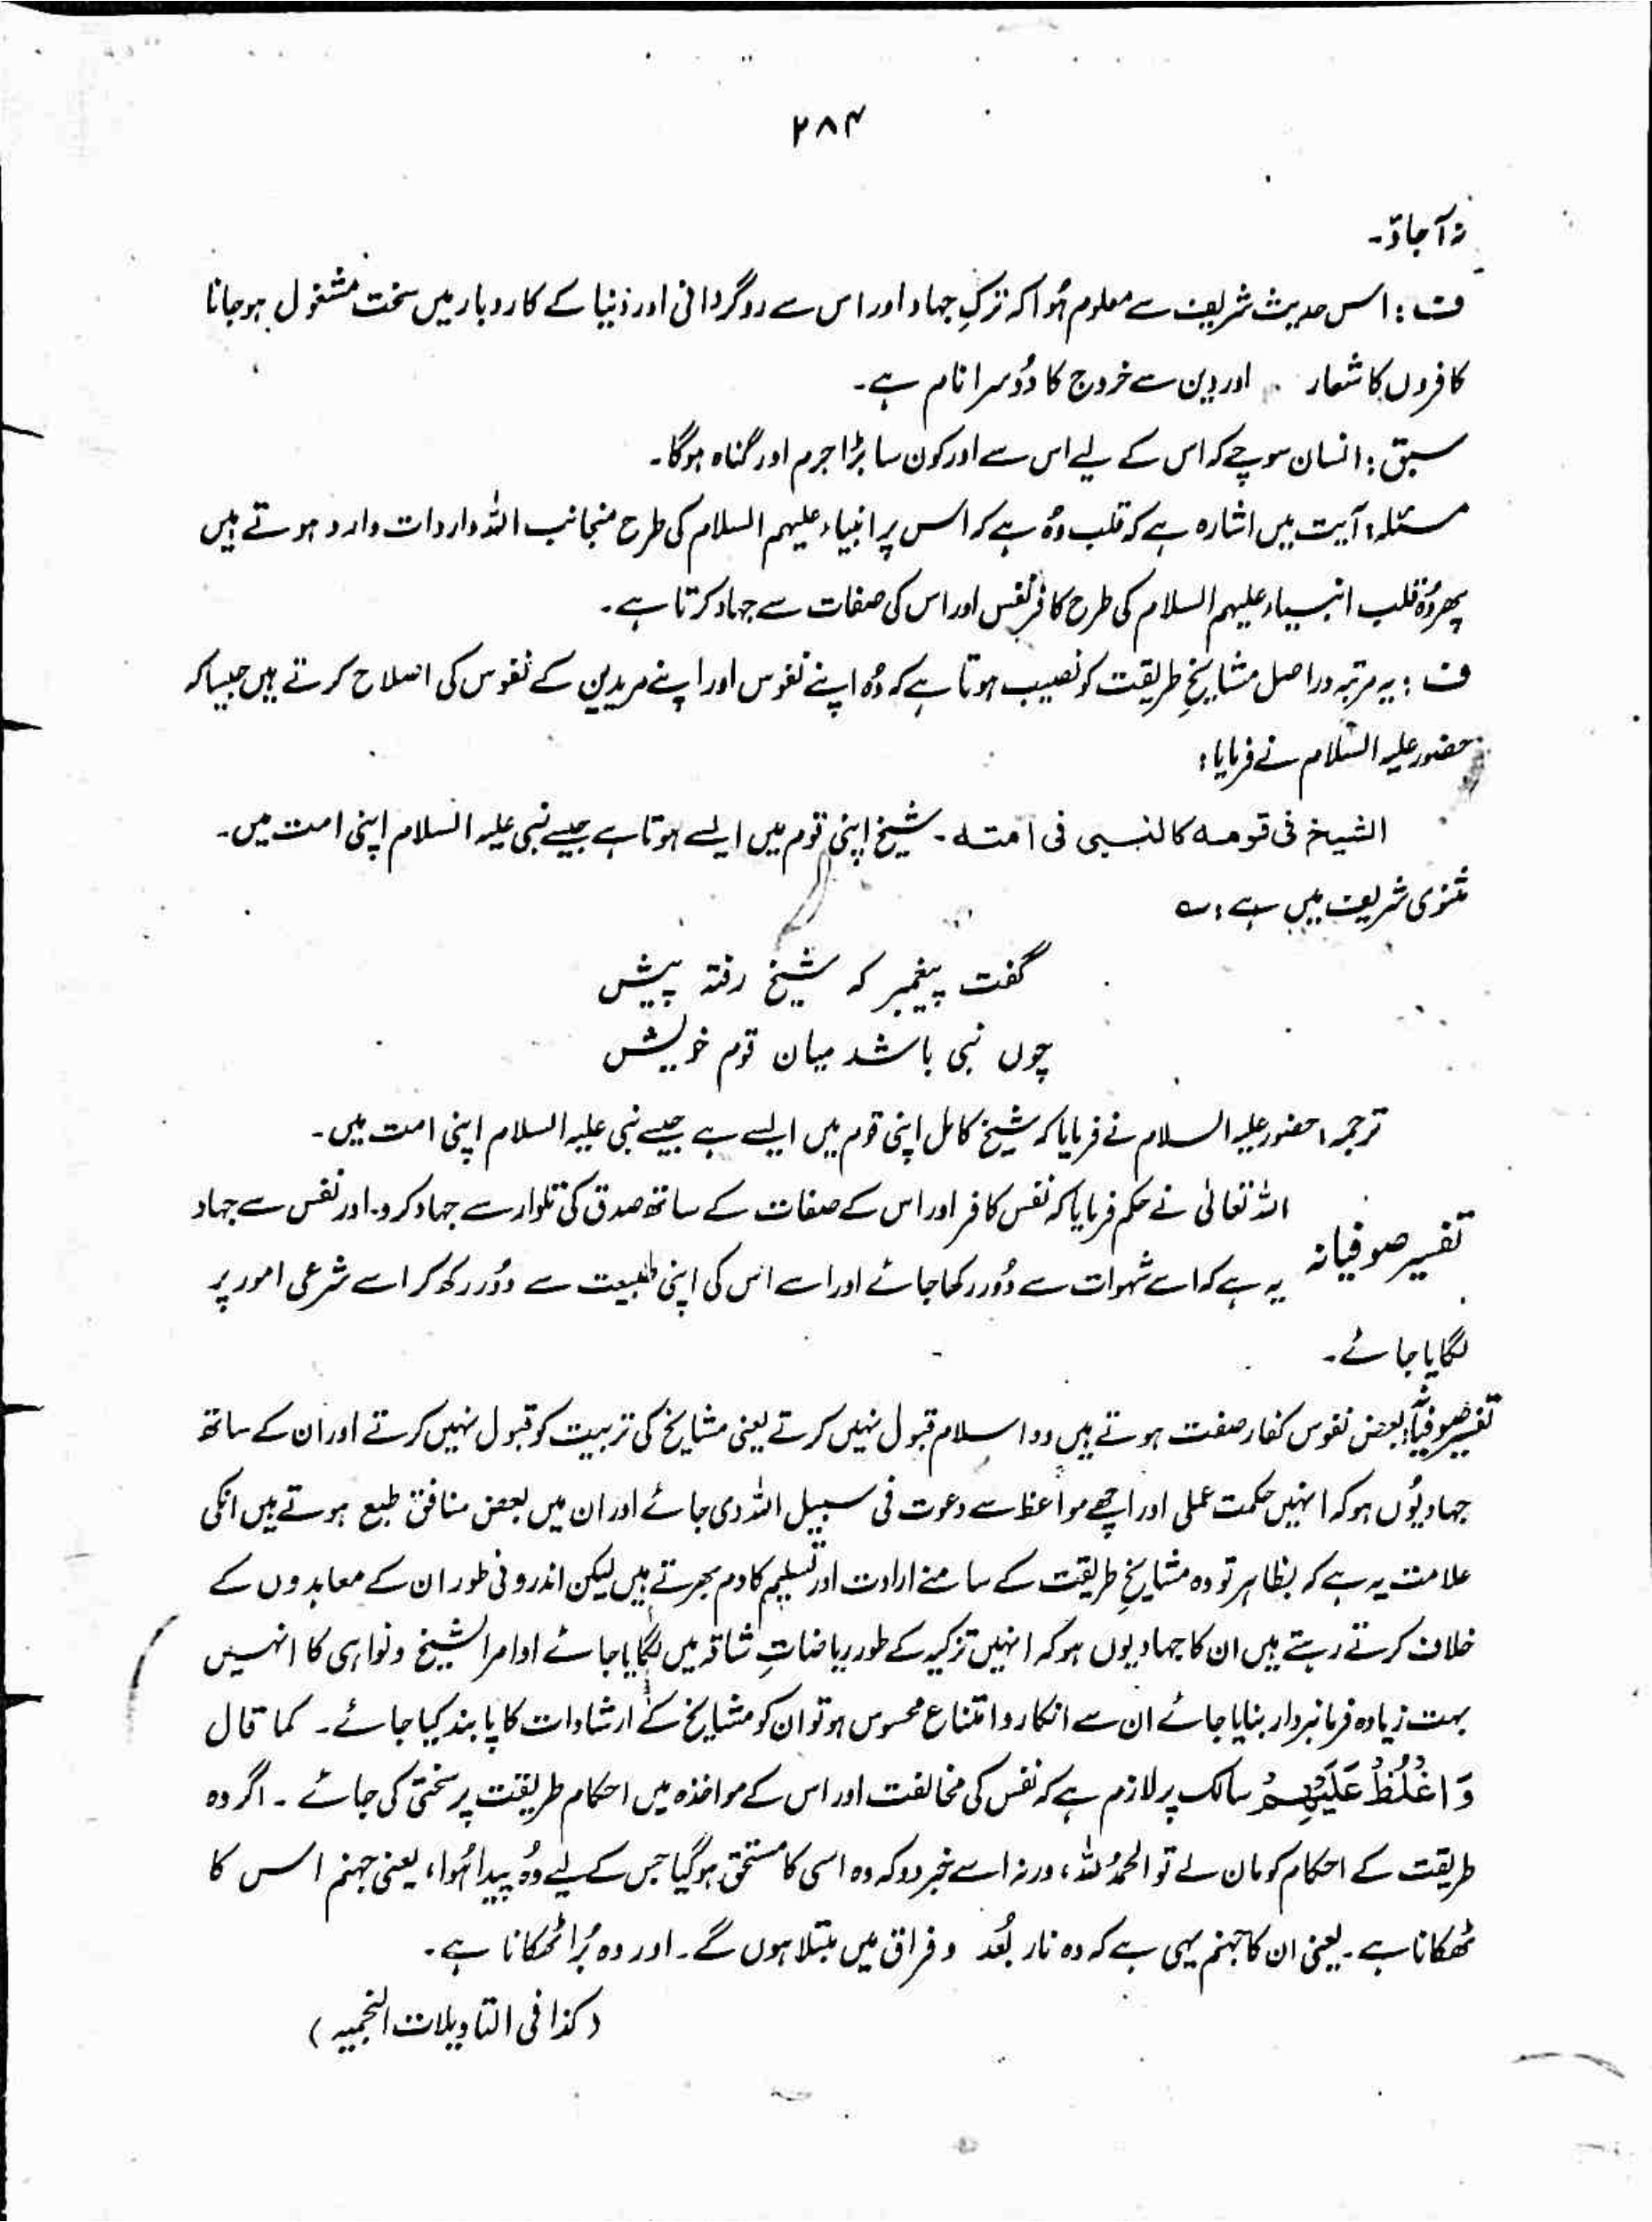 ۲۸۴
نہ آجاؤ۔
ف : اس حدیث شریف سے معلوم ہُوا کہ ترکِ جہاد اور اس سے روگردانی اور دُنیا کے کاروبار میں سخت مشغول ہو جانا
کافروں کا شعار اور دین سے خروج کا دُوسرا نام ہے۔
سبق : انسان سوچے کہ اس کے لیے اس سے اور کون سا بڑا جرم اور گناہ ہوگا۔
مسئلہ : آیت میں اشارہ ہے کہ قلب وُہ ہے کہ اس پر انبیاء علیہم السلام کی طرح منجانب اللہ واردات وارد ہوتے ہیں
پھر وُہ قلب انبیاء علیہم السلام کی طرح کافر نفس اور اس کی صفات سے جہاد کرتا ہے۔
ف : یہ مرتبہ دراصل مشایخِ طریقت کو نصیب ہوتا ہے کہ وُہ اپنے نفوس اور اپنے مریدین کے نفوس کی اصلاح کرتے ہیں جیسا کہ
حضور علیہ السّلام نے فرمایا :
الشیخ فی قومہ کالنبی فی امتہ ۔ شیخ اپنی قوم میں ایسے ہوتا ہے جیسے نبی علیہ السلام اپنی امت میں۔
مثنوی شریف میں ہے : ؎
گفت پیغمبر کہ شیخ رفتہ پیش
چوں نبی باشد میان قوم خویش
ترجمہ : حضور علیہ السلام نے فرمایا کہ شیخ کامل اپنی قوم میں ایسے ہے جیسے نبی علیہ السلام اپنی امت میں۔
تفسیر صوفیانہ اللہ تعالیٰ نے حکم فرمایا کہ نفس کافر اور اس کے صفات کے ساتھ صدق کی تلوار سے جہاد کرو۔ اور نفس سے جہاد
یہ ہے کہ اسے شہوات سے دُور رکھا جائے اور اسے اس کی اپنی طبیعت سے دُور رکھ کر اسے شرعی امور پر
لگایا جائے۔
تفسیر صوفیانہ : بعض نفوس کفار صفت ہوتے ہیں وہ اسلام قبول نہیں کرتے یعنی مشایخ کی تربیت کو قبول نہیں کرتے اور ان کے ساتھ
جہاد یُوں ہو کہ انہیں حکمت عملی اور اچھے مواعظ سے دعوت فی سبیل اللہ دی جائے اور ان میں بعض منافق طبع ہوتے ہیں انکی
علامت یہ ہے کہ بظاہر تو وہ مشایخِ طریقت کے سامنے ارادت اور تسلیم کا دم بھرتے ہیں لیکن اندرونی طور ان کے معاہدوں کے
خلاف کرتے رہتے ہیں ان کا جہاد یوں ہو کہ انہیں تزکیہ کے طور ریاضاتِ شاقہ میں لگایا جائے اوامر الشیخ و نواہی کا انہیں
بہت زیادہ فرمانبردار بنایا جائے ان سے انکار و امتناع محسوس ہو تو ان کو مشایخ کے ارشادات کا پابند کیا جائے۔ کما قال
وَاغْلُظْ عَلَیْهِمْ سالک پر لازم ہے کہ نفس کی مخالفت اور اس کے مواخذہ میں احکام طریقت پر سختی کی جائے ۔ اگر وہ
طریقت کے احکام کو مان لے تو الحمدُ للہ ، ورنہ اسے خبر دو کہ وہ اسی کا مستحق ہو گیا جس کے لیے وُہ پیدا ہُوا ، یعنی جہنم اس کا
ٹھکانا ہے۔ یعنی ان کا جہنم یہی ہے کہ وہ نار بُعد و فراق میں مبتلا ہوں گے۔ اور وہ بُرا ٹھکانا ہے۔
( کذا فی التاویلات النجمیہ )